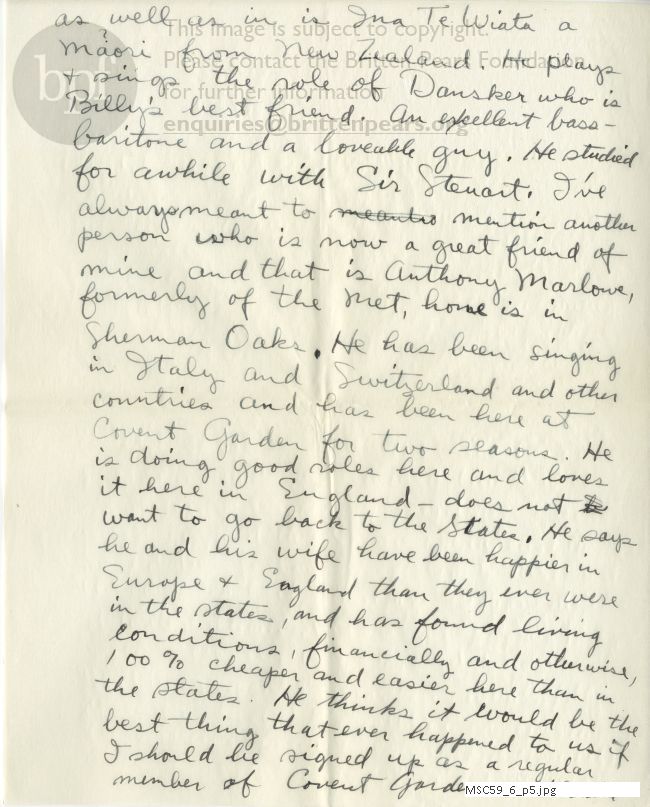 as well as in is Ina Te Wiata a
Māori from New Zealand. He plays
& sings the role of Dansker who is
Billy's best friend. An exkellent bass-
baritone and a loveable guy. He studied
for awhile with Sir Steuart. I've
always meant to meant to mention another
person who is now a great friend of
mine and that is Anthony Marlowe,
formerly of the Met, home is in
Sherman Oaks. He has been singing
in Italy and Switzerland and other
countries and has been here at
Covent Garden for two seasons. He
is doing good roles here and loves
it here in England – does not
want to go back to the States. He says
he and his wife have been happier in
Europe & England than they ever were
in the states, and has found living
conditions, financially and otherwise,
100% cheaper and easier here than in
the states. He thinks it would be the
best thing that ever happened to us if
I should be signed up as a regular
member of Covent Garden
This image is subject to copyright.
Please contact the Britten-Pears Foundation
for further information
enquiries@brittenpears.org
bpf
MSC59_6_p5.jpg